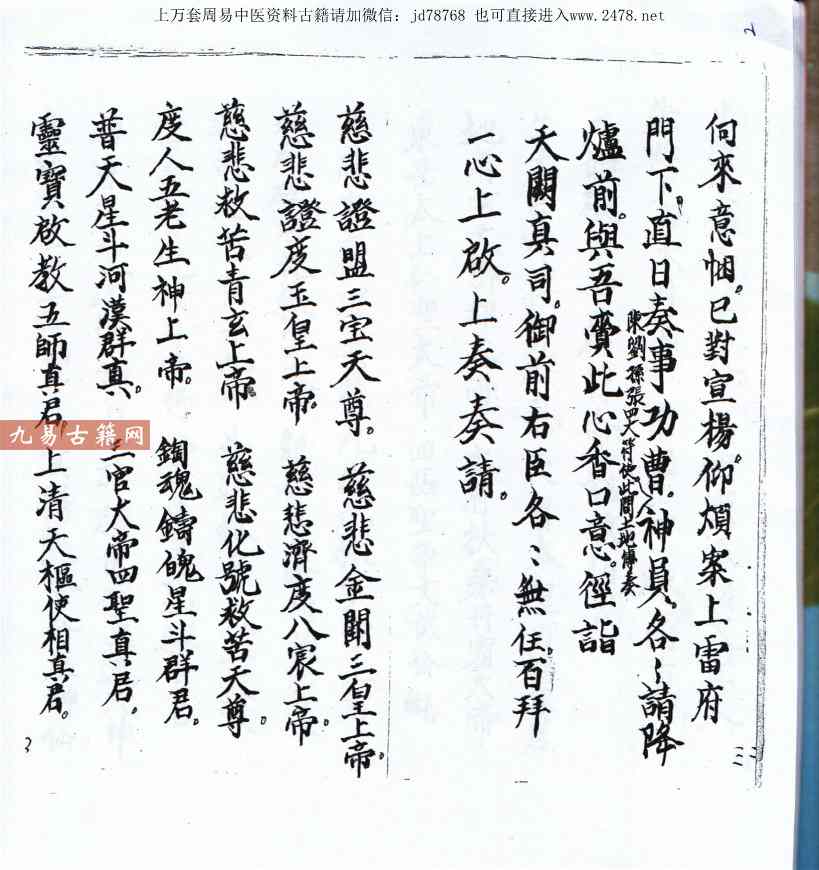 上万套周易中医资料古籍请加微信：jd78768 也可直接进入www.2478.net
何來意悃。已對宣揚。仰煩案上雷府
門下。直日奏事功曹。神員。各〻請降
陳劉孫張四大符使此間土地傳奏
爐前。與吾賫此心香口意。徑詣
天闕真司。御前右臣各〻無任。百拜
一心上啟。上奏奏請。
慈悲證盟三宝天尊。慈悲金闕三皇上帝。
慈悲證度玉皇上帝。慈悲濟度八宸上帝。
慈悲救苦青玄上帝。慈悲化號救苦天尊。
度人五老生神上帝。鍧魂鑄魄星斗群君。
普天星斗河漢群真。三官大帝四聖真君。
靈寶啟教五師真君。上清天樞使相真君。
九易古籍网
3